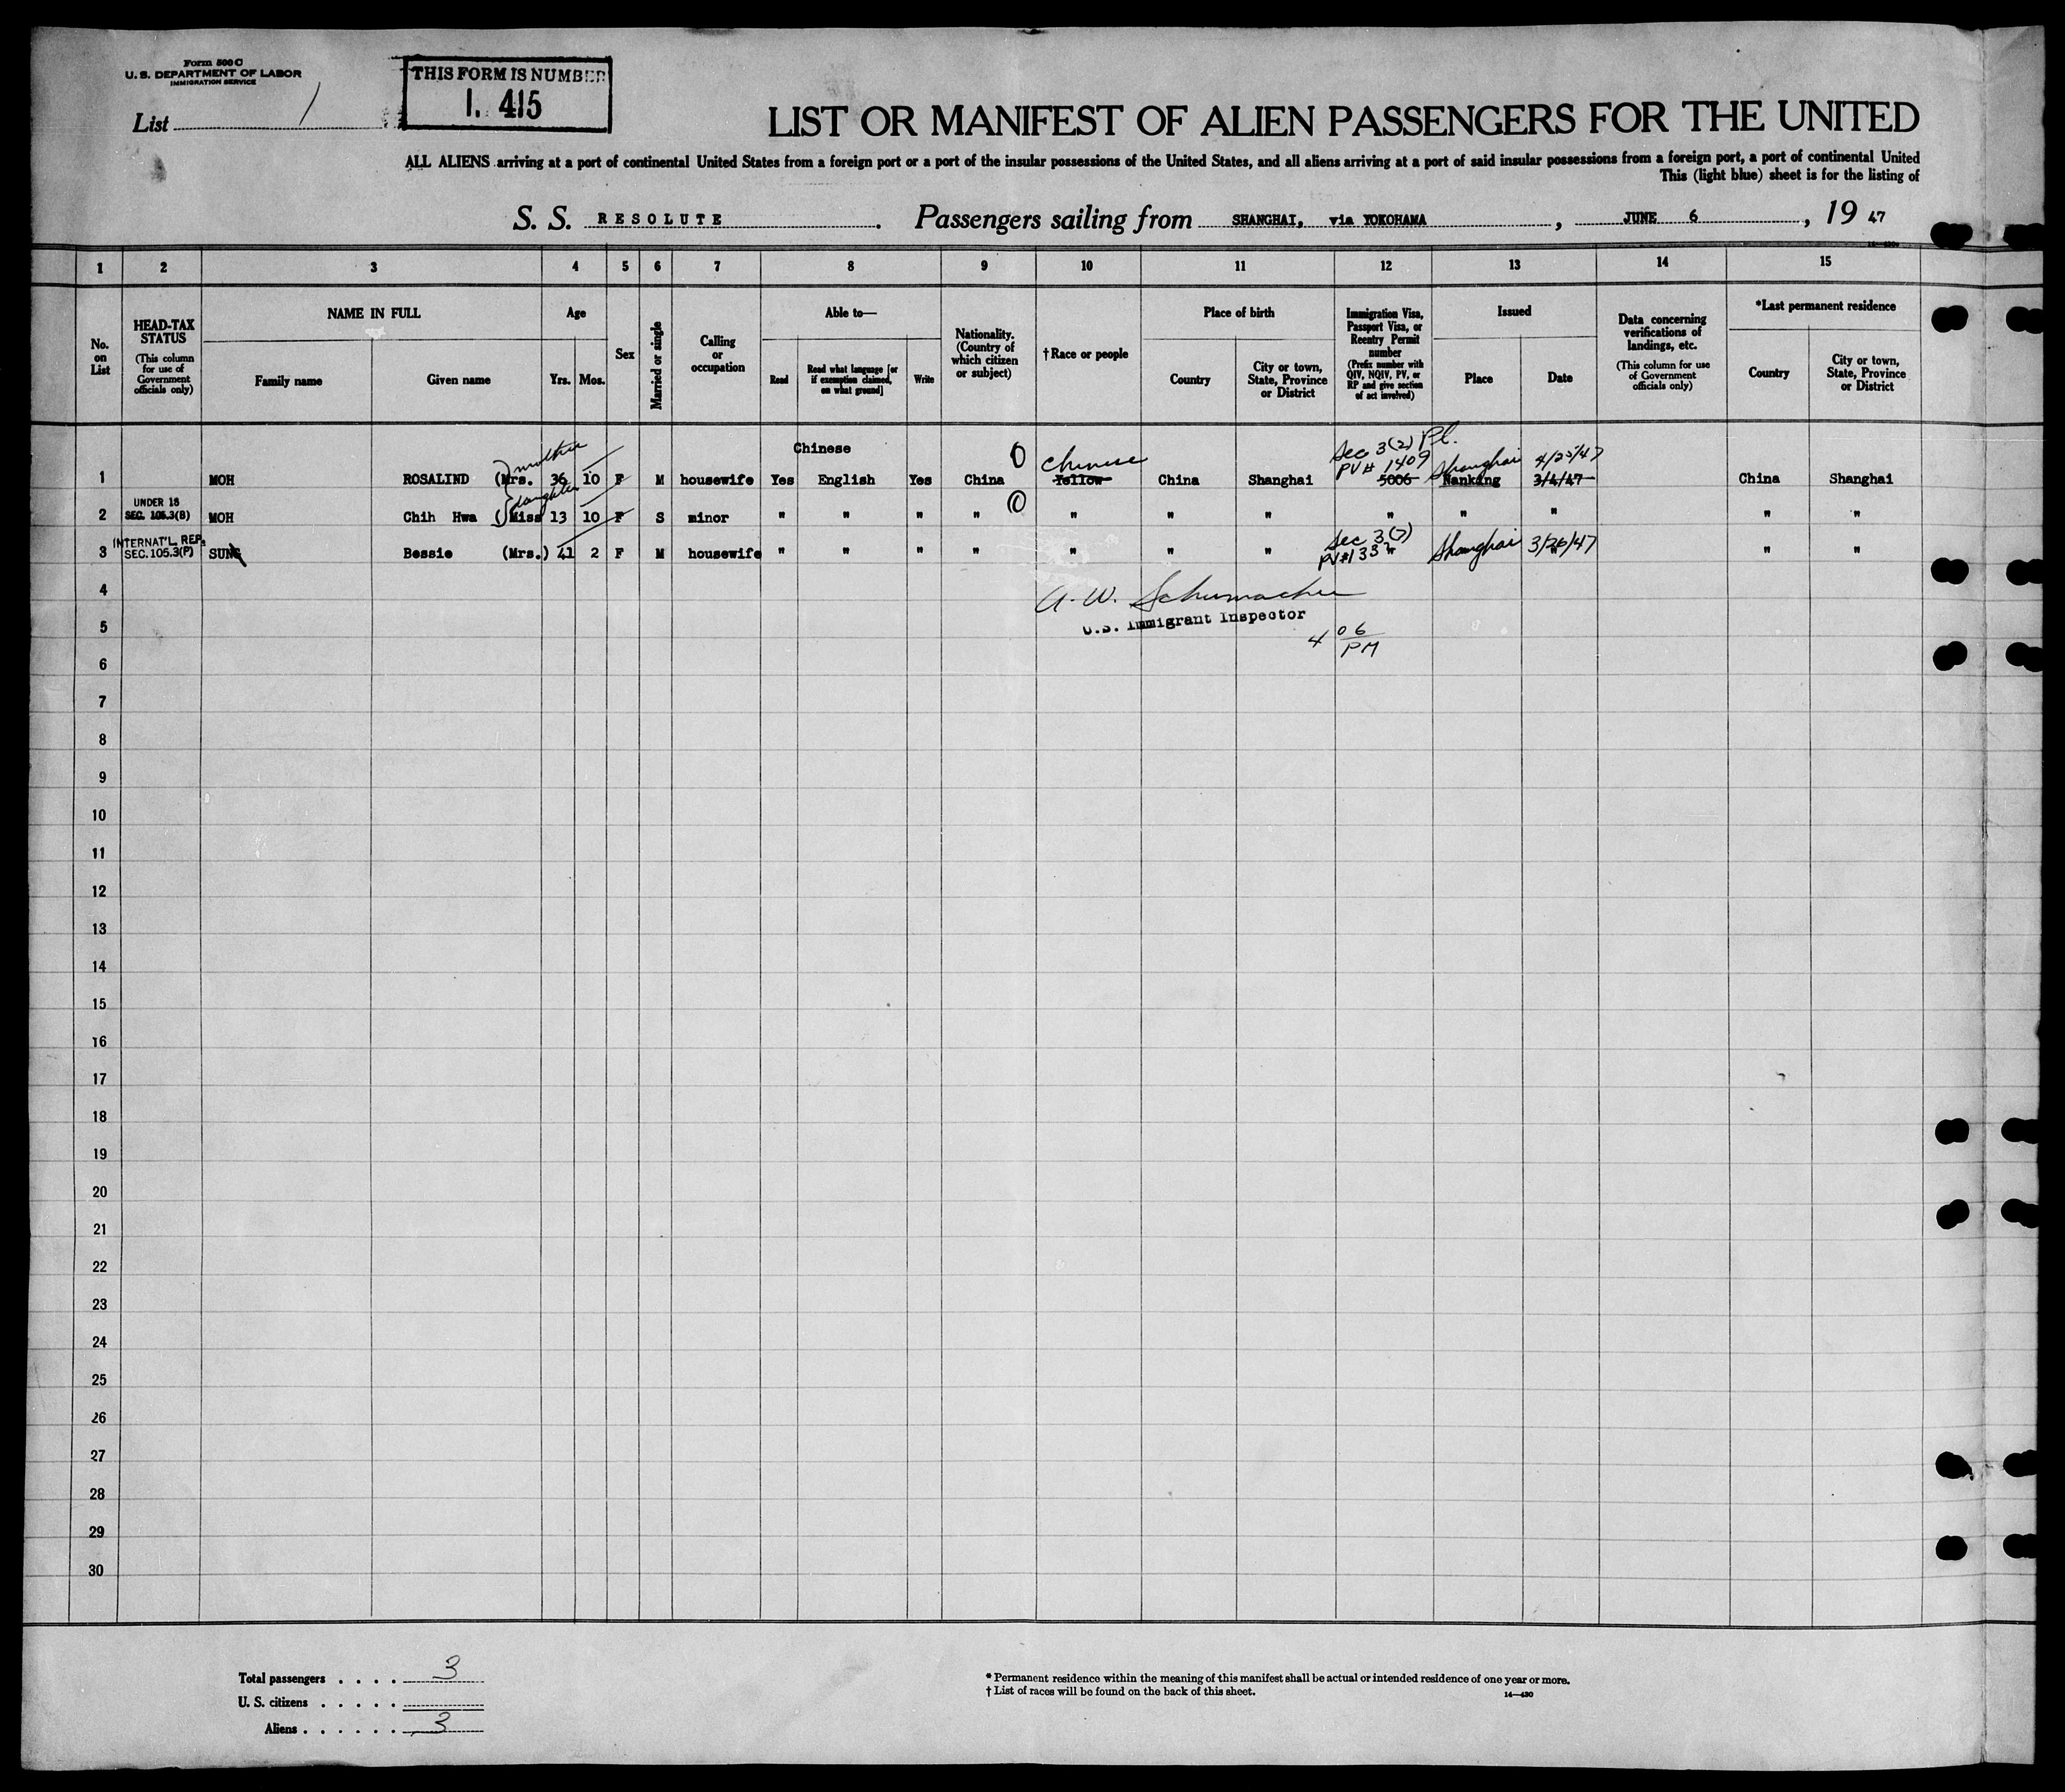 Form 500 C
U. S. DEPARTMENT OF LABOR
IMMIGRATION SERVICE
List 1
THIS FORM IS NUMBER
1. 415
LIST OR MANIFEST OF ALIEN PASSENGERS FOR THE UNITED
ALL ALIENS arriving at a port of continental United States from a foreign port or a port of the insular possessions of the United States, and all aliens arriving at a port of said insular possessions from a foreign port, a port of continental United
This (light blue) sheet is for the listing of
S. S. RESOLUTE. Passengers sailing from SHANGHAI, via YOKOHAMA, JUNE 6, 19 47
1 2 3 4 5 6 7 8 9 10 11 12 13 14 15
No. on List
HEAD-TAX STATUS
(This column for use of Government officials only)
NAME IN FULL
Family name
Given name
Age
Yrs. Mos.
Sex
Married or single
Calling or occupation
Able to—
Read
Read what language [or if exemption claimed, on what ground]
Write
Nationality. (Country of which citizen or subject)
† Race or people
Place of birth
Country
City or town, State, Province or District
Immigration Visa, Passport Visa, or Reentry Permit number
(Prefix number with QIV, NQIV, PV, or RP and give section of act involved)
Issued
Place
Date
Data concerning verifications of landings, etc.
(This column for use of Government officials only)
*Last permanent residence
Country
City or town, State, Province or District
mother Chinese 0 Chinese Sec 3(2) Pl. PV# 1409 Shanghai 4/25/47
1 MOH ROSALIND (Mrs. 36 10 F M housewife Yes English Yes China Yellow China Shanghai 5006 Nanking 3/4/47 China Shanghai
UNDER 18 daughter 0
2 SEC. 105.3(B) MOH Chih Hwa (Miss 13 10 F S minor " " " " " " " " " " " "
INTERNAT'L REP. Sec 3(7)
3 SEC. 105.3(P) SUNG Bessie (Mrs.) 41 2 F M housewife " " " " " " " PV#133 " Shanghai 3/26/47 " "
4
A. W. Schumacher
5
U.S. Immigrant Inspector
4 06 PM
6
7
8
9
10
11
12
13
14
15
16
17
18
19
20
21
22
23
24
25
26
27
28
29
30
Total passengers . . . . 3
U. S. citizens . . . . .
Aliens . . . . . . 3
* Permanent residence within the meaning of this manifest shall be actual or intended residence of one year or more.
† List of races will be found on the back of this sheet.
14—430